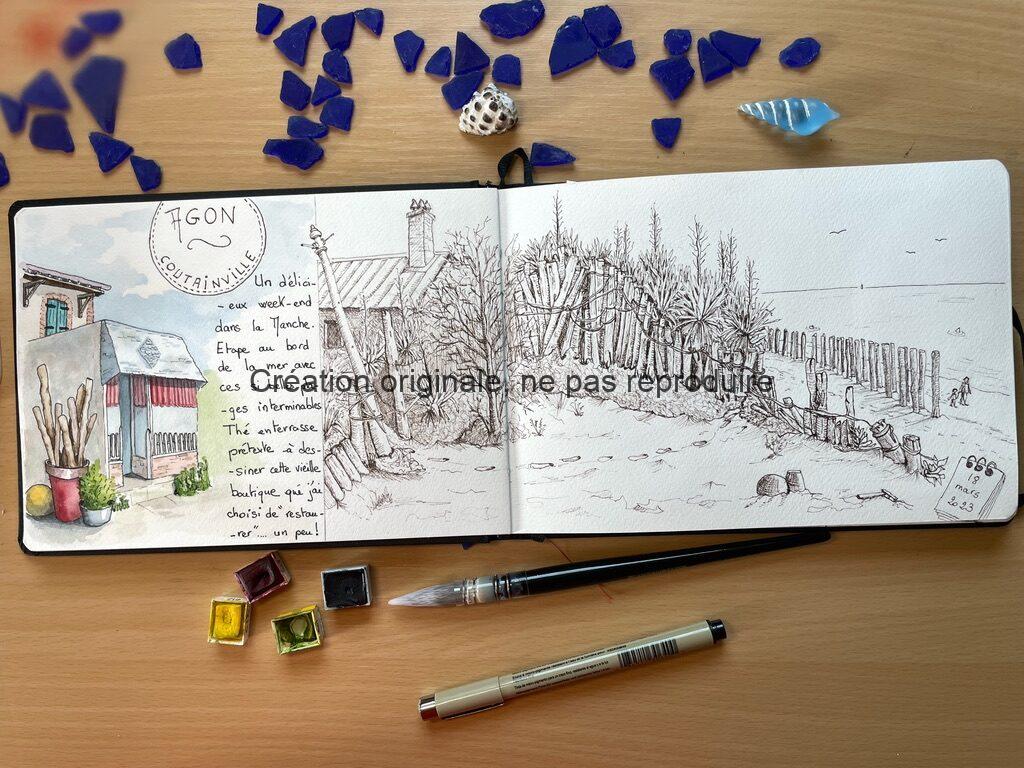 AGON
COUTAINVILLE
Un délici-
-eux week-end
dans la Manche.
Etape au bord
de la mer avec
ces
-ges interminables
Thé en terrasse
prétexte à des-
-siner cette vieille
boutique que j'ai
choisi de "restau-
-rer".... un peu!
Création originale, ne pas reproduire
18
mars
2023